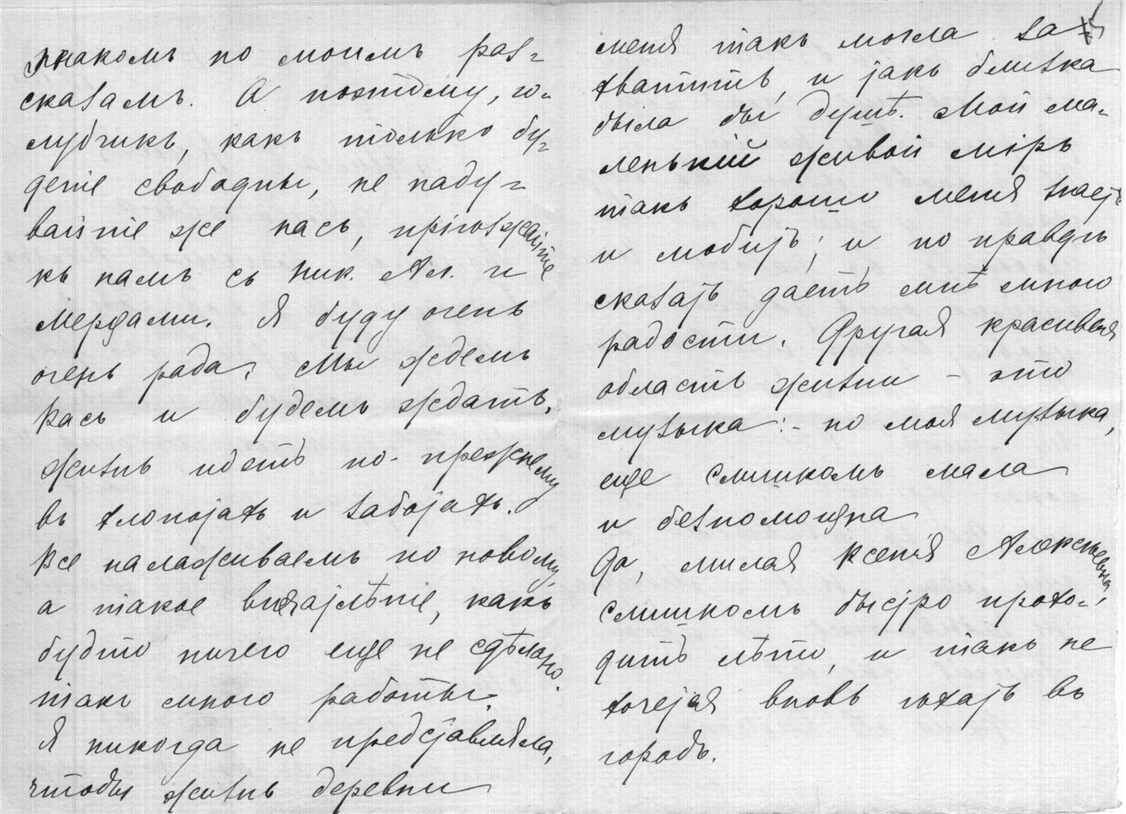 знакомъ по моимъ раз-
сказамъ. А поэтому, го-
лубчикъ, какъ только бу-
дете свободны, не наду-
вайте же насъ, пріѣзжайте
къ намъ съ Ник. Ал. и
Мердами. Я буду очень
очень рада. Мы ждемъ
Васъ и будемъ ждать.
Жизнь идетъ по-прежнему
въ хлопотахъ и заботахъ.
Все налаживаемъ по новому,
а такое впечатлѣніе, какъ
будто ничего еще не сдѣлано.
такъ много работы.
Я никогда не представляла,
чтобы жизнь деревни
меня такъ могла за-
хватить, и такъ близка
была бы душѣ. Мой ма-
ленькій живой міръ
такъ хорошо меня знаетъ
и любитъ; и по правдѣ
сказать даетъ мнѣ много
радости. Другая красивая
область жизни – это
музыка: - но моя музыка,
еще слишкомъ мала
и безпомощна
Да, милая Ксенія Алексѣевна,
слишкомъ быстро прохо-
дитъ лѣто, и такъ не
хочется вновь ѣхать въ
городъ.